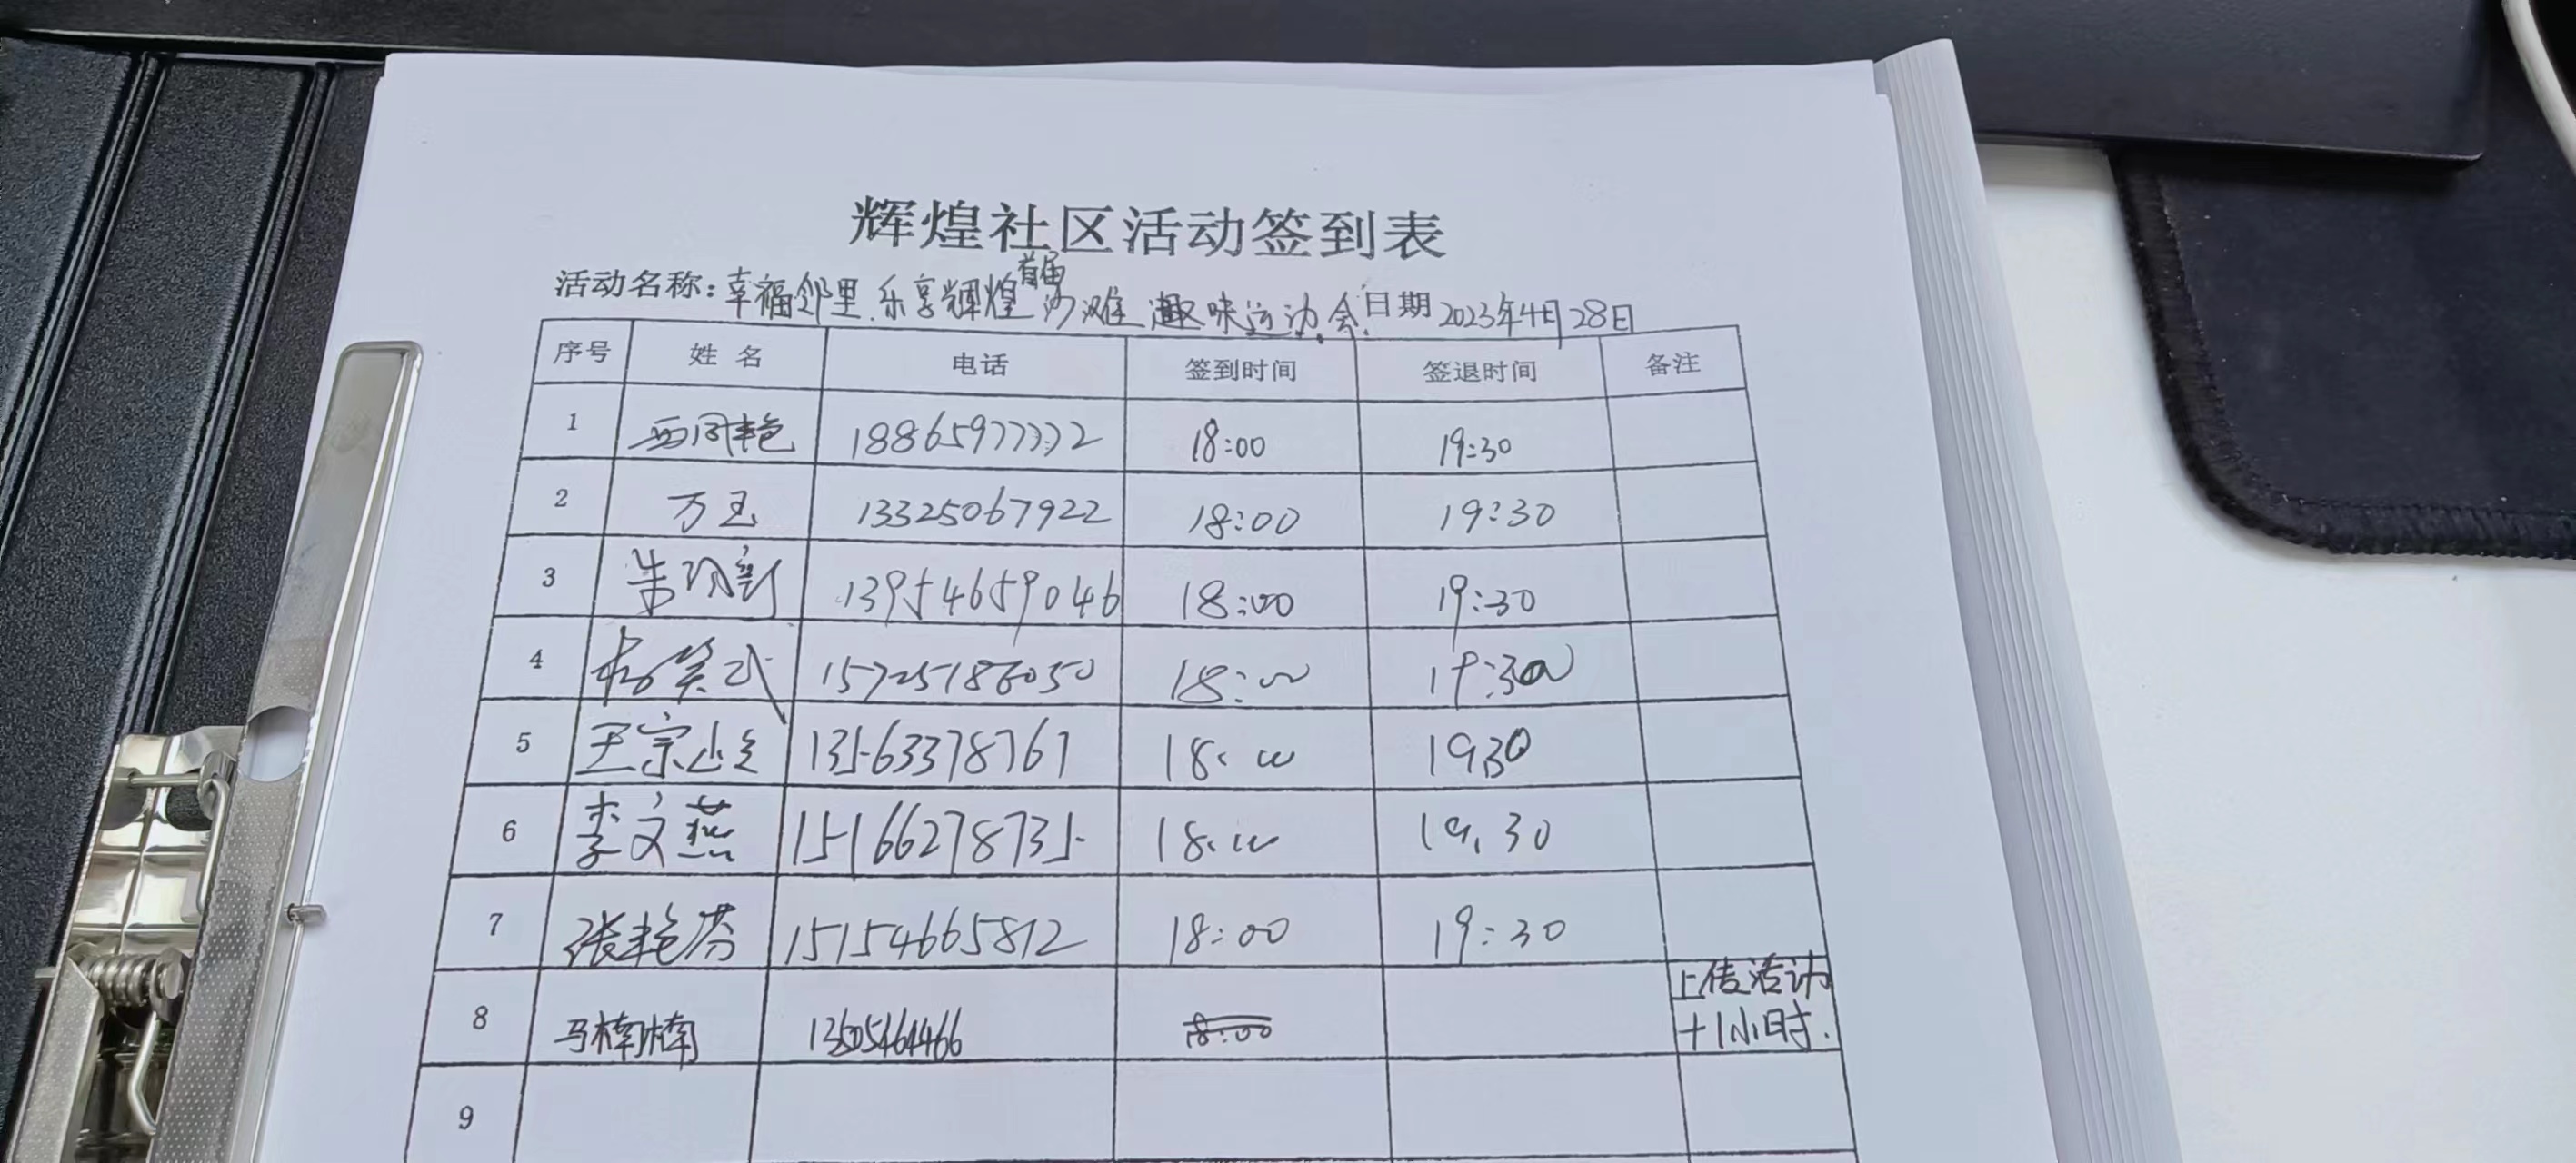 辉煌社区活动签到表
首届
活动名称：幸福邻里.乐享辉煌沙滩趣味运动会 日期 2023年4月28日
序号 姓名 电话 签到时间 签退时间 备注
1 18865977772 18:00 19:30
2 万玉 13325067922 18:00 19:30
3 13954659046 18:00 19:30
4 15725186050 18:00 19:30
5 王宗 13563378767 18:00 1930
6 李文燕 15166278735 18:00 19.30
7 张艳芬 15154665812 18:00 19:30
8 马楠楠 13505461466 18:00 上传活动
+1小时.
9